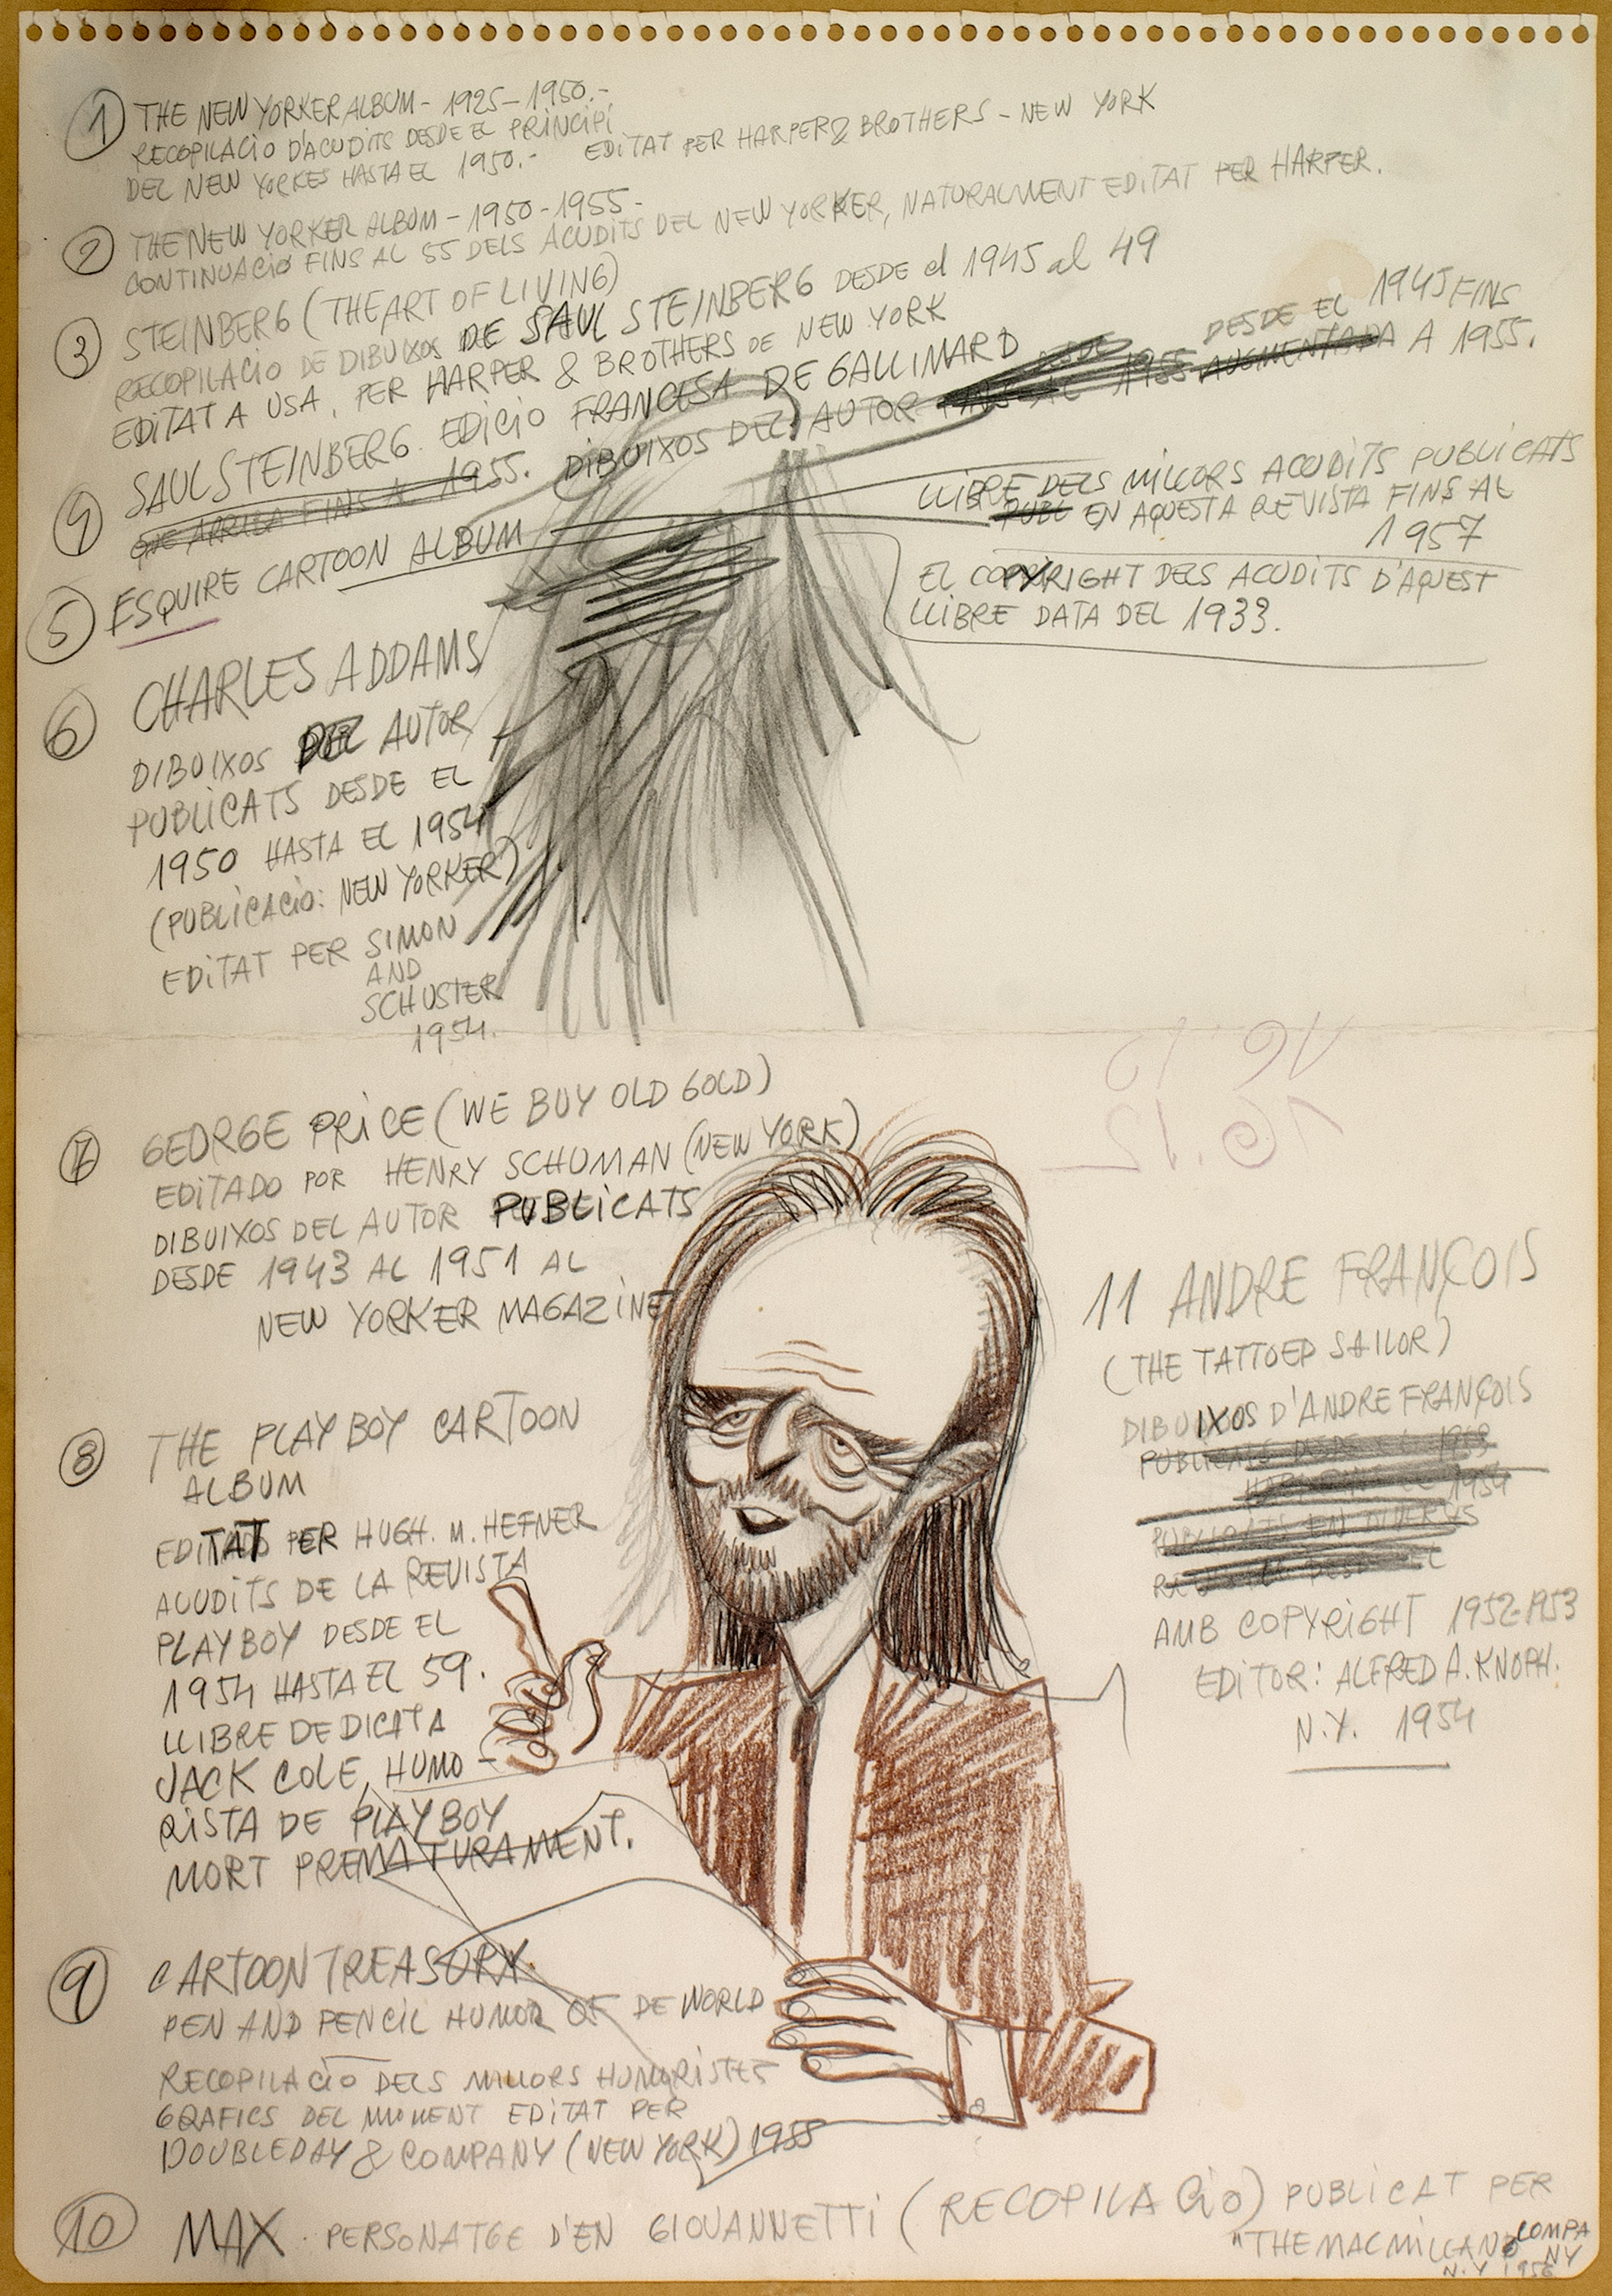 1 THE NEW YORKER ALBUM - 1925-1950.-
RECOPILACIO D'ACUDITS DESDE EL PRINCIPI
DEL NEW YORKES HASTA EL 1950.- EDITAT PER HARPER & BROTHERS - NEW YORK
2 THE NEW YORKER ALBUM - 1950-1955-
CONTINUACIÓ FINS AL 55 DELS ACUDITS DEL NEW YORKER, NATURALMENT EDITAT PER HARPER.
3 STEINBERG (THE ART OF LIVING)
RECOPILACIO DE DIBUIXOS DE SAUL STEINBERG DESDE el 1945 al 49
EDITAT A USA, PER HARPER & BROTHERS DE NEW YORK
4 SAUL STEINBERG. EDICIO FRANCESA DE GALLIMARD
QUE ARRIBA FINS AL 1955. DIBUIXOS DEL AUTOR FINS AL 1955 AUGMENTADA A 1955.
DESDE EL 1945 FINS
5 ESQUIRE CARTOON ALBUM
LLIBRE DELS MILLORS ACUDITS PUBLICATS
PUBL EN AQUESTA REVISTA FINS AL
1957
EL COPYRIGHT DELS ACUDITS D'AQUEST
LLIBRE DATA DEL 1933.
6 CHARLES ADDAMS
DIBUIXOS DEL AUTOR
PUBLICATS DESDE EL
1950 HASTA EL 1954
(PUBLICACIÓ: NEW YORKER)
EDITAT PER SIMON
AND
SCHUSTER
1954.
16.12
16.12
7 GEORGE PRICE (WE BUY OLD GOLD)
EDITADO POR HENRY SCHUMAN (NEW YORK)
DIBUIXOS DEL AUTOR PUBLICATS
DESDE 1943 AL 1951 AL
NEW YORKER MAGAZINE
8 THE PLAY BOY CARTOON
ALBUM
EDITAT PER HUGH. M. HEFNER
ACUDITS DE LA REVISTA
PLAYBOY DESDE EL
1954 HASTA EL 59.
LLIBRE DEDICAT A
JACK COLE, HUMO-
RISTA DE PLAYBOY
MORT PREMATURAMENT.
9 CARTOON TREASURY.
PEN AND PENCIL HUMOR OF DE WORLD
RECOPILACIO DELS MILLORS HUMORISTES
GRAFICS DEL MOMENT EDITAT PER
DOUBLEDAY & COMPANY (NEW YORK) 1955
10 MAX. PERSONATGE D'EN GIOVANNETTI (RECOPILACIÓ) PUBLICAT PER
"THE MACMILLAN COMPA
NY
N.Y 1956
11 ANDRE FRANÇOIS
(THE TATTOED SAILOR)
DIBUIXOS D'ANDRE FRANÇOIS
PUBLICATS DESDE EL 1953
HASTA EL 1954
PUBLICATS EN DIVERSES
DESDE EL
AMB COPYRIGHT 1952-1953
EDITOR: ALFRED A. KNOPH.
N.Y. 1954